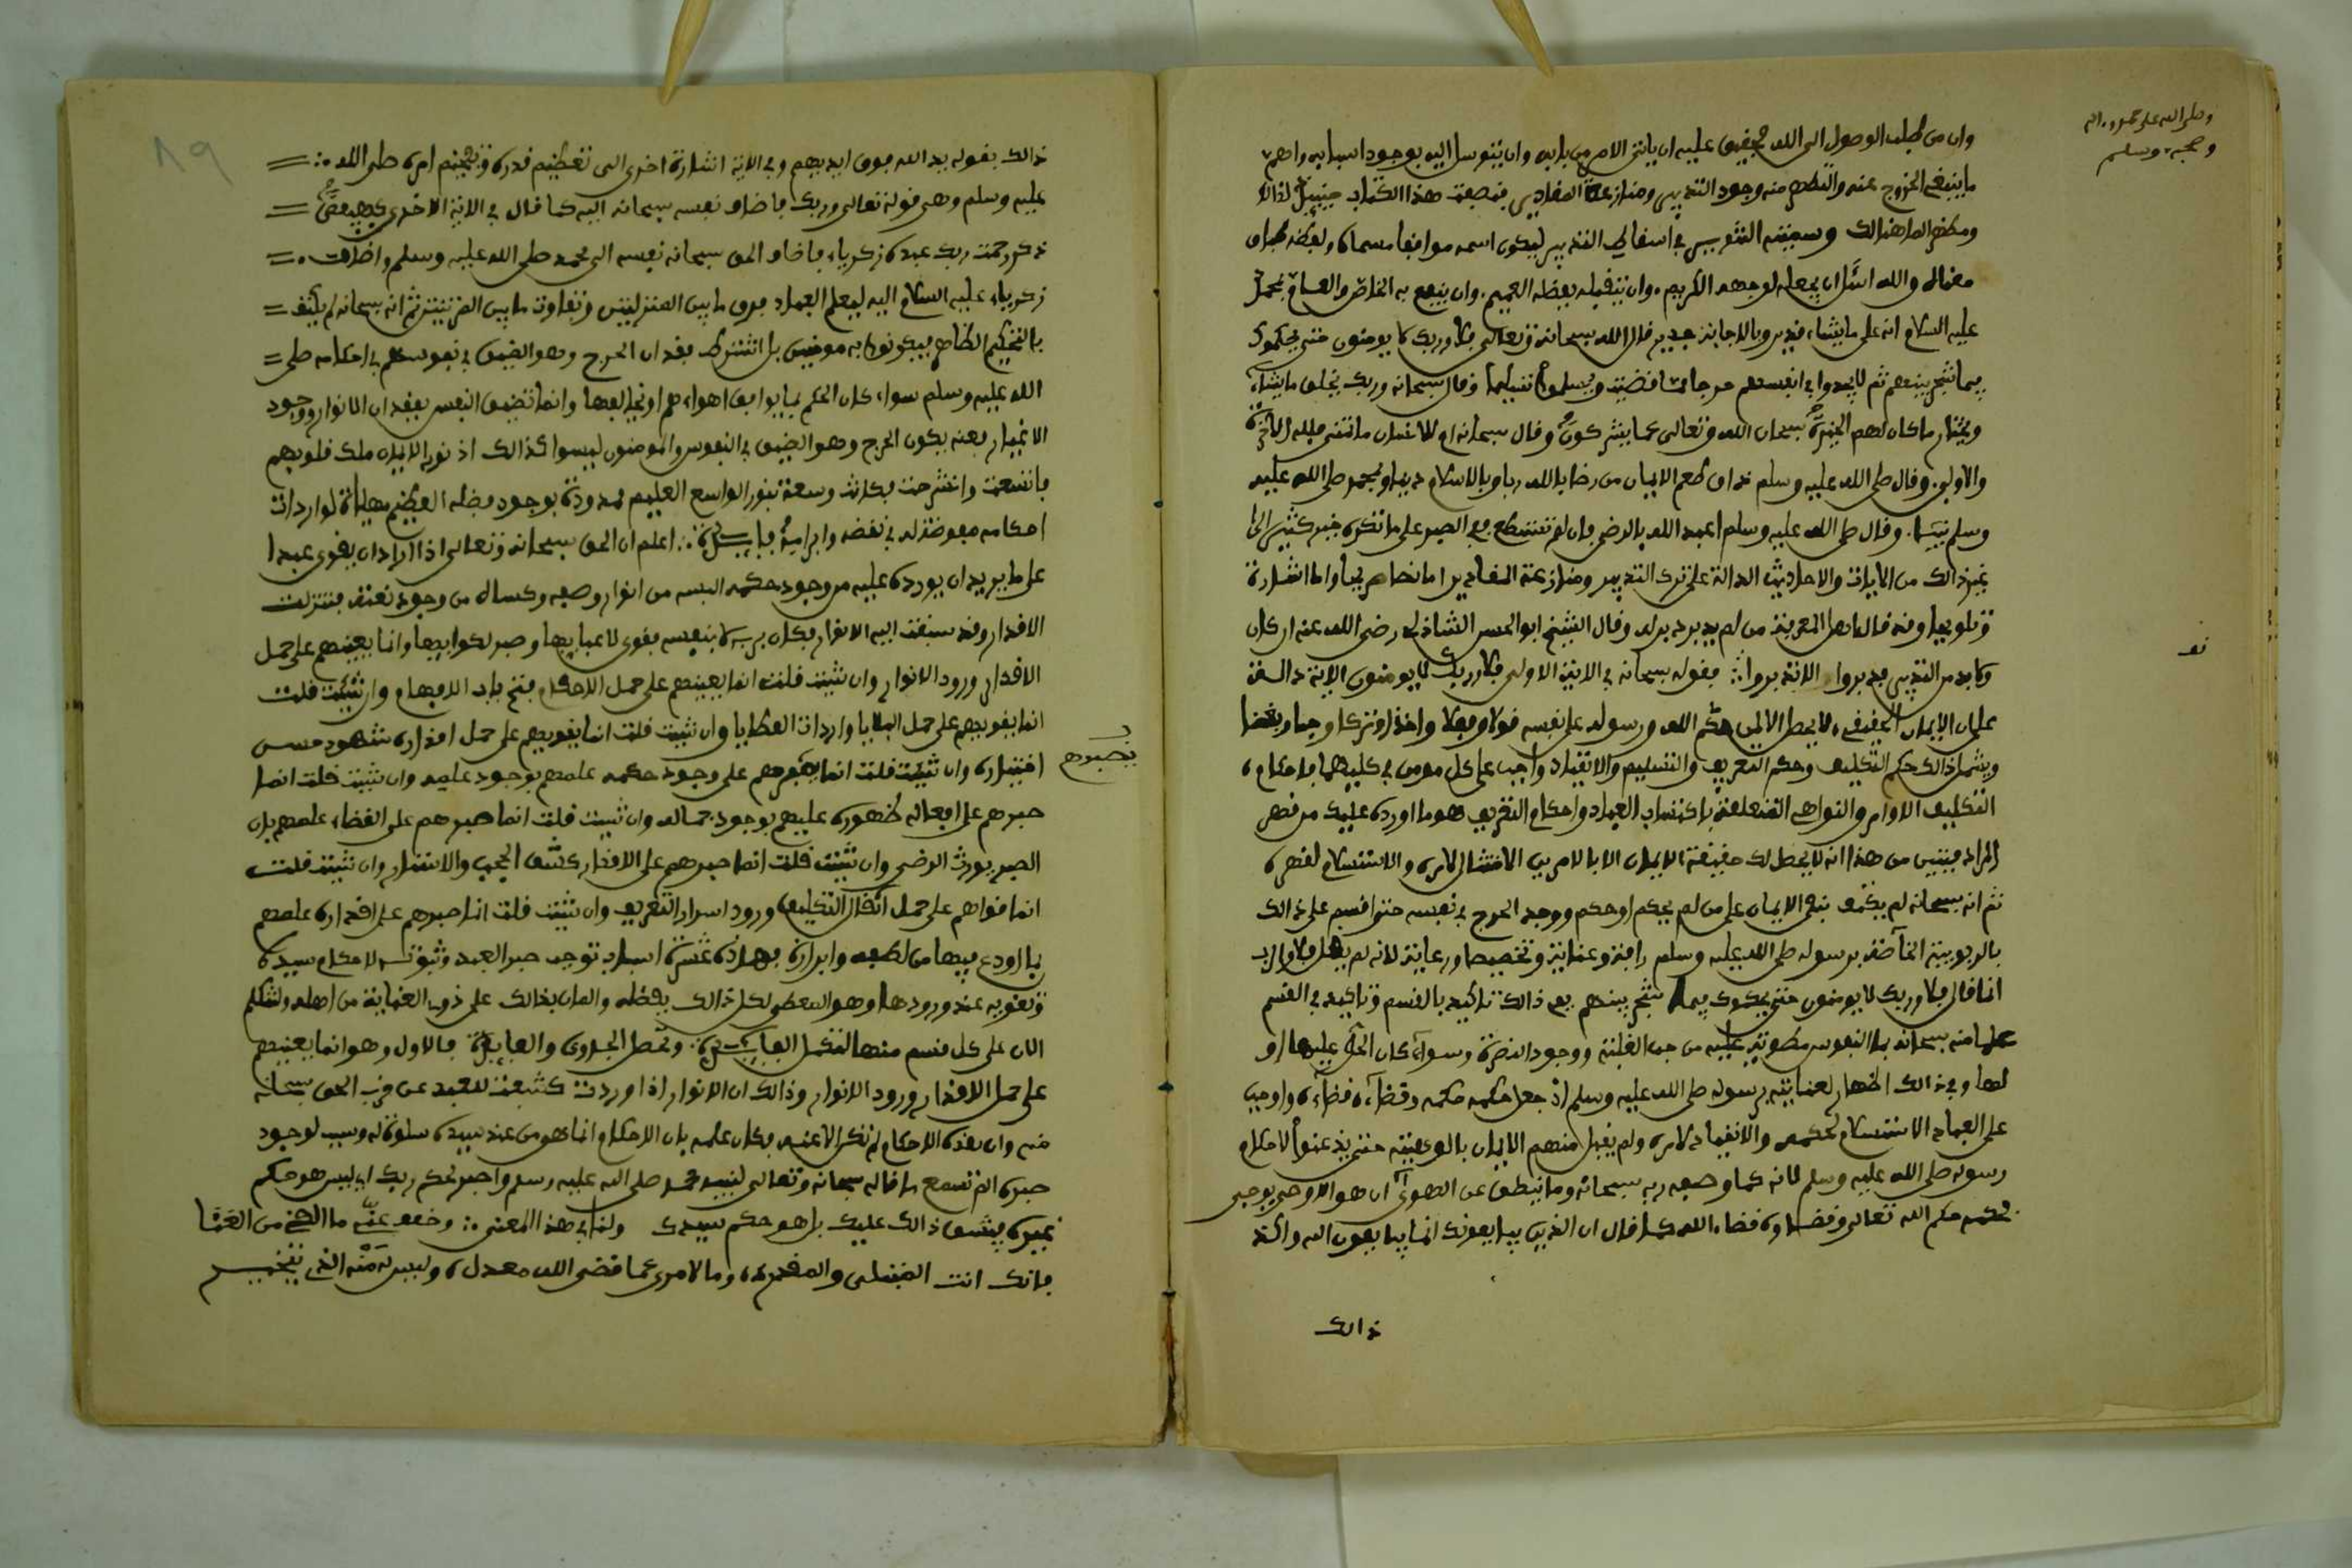 وصلى الله على محمد وءاله
وصحبه وسلم
وان من طلب الوصول الى الله فحقيق عليه ان ياتي الامر من بابه وان يتوسل اليه بوجود اسبابه واهم
ما ينبغي الخروج عنه والتطهر منه وجود التدبير ومنازعة المقادير فصنعت هذا الكتاب مبينا لذالك
ومظهرا لما هنالك وسميته التنوير في اسقاط التدبير ليكون اسمه موافقا مسماه ولفظه طباق
معناه والله اسأل ان يجعله لوجهه الكريم وان يتقبله بفضله العميم وان ينفع به الخاص والعام بمحمد
عليه السلام انه على ما يشاء قدير وبالاجابة جدير قال الله سبحانه وتعالى فلا وربك لا يومنون حتى يحكموك
فيما شجر بينهم ثم لا يجدوا في انفسهم حرجا مما قضيت ويسلموا تسليما وقال سبحانه وربك يخلق ما يشاء
ويختار ما كان لهم الخيرة سبحان الله وتعالى عما يشركون وقال سبحانه ام للانسان ما تمنى فلله الاخرة
والاولى وقال صلى الله عليه وسلم ذاق طعم الايمان من رضي بالله ربا وبالاسلام دينا وبمحمد صلى الله عليه
وسلم نبيا وقال صلى الله عليه وسلم اعبد الله بالرضى فان لم تستطع ففي الصبر على ما تكره خير كثير الى
غير ذالك من الايات والاحاديث الدالة على ترك التدبير ومنازعة المقادير اما نصا صريحا واما اشارة
وتلويحا وقد قال اهل المعرفة من لم يدبر دبر له وقال الشيخ ابو الحسن الشاذلي رضي الله عنه ان كان
ولا بد من التدبير فدبروا الا تدبروا فقوله سبحانه في الاية الاولى فلا وربك لا يومنون الاية دالة
على ان الايمان الحقيقي لا يحصل الا لمن حكم الله ورسوله على نفسه قولا وفعلا واخذا وتركا وحبا وبغضا
ويشمل ذالك حكم التكليف وحكم التعريف والتسليم والانقياد واجب على كل مومن في كليهما فاحكام
التكليف الاوامر والنواهي المتعلقة باكتساب العباد واحكام التعريف هو ما اورده عليك من فهم
المراد فتبين من هذا انه لا يحصل لك حقيقة الايمان الا بالامرين الامتثال لامره والاستسلام لقهره
ثم انه سبحانه لم يكتف بنفي الايمان على من لم يحكم او حكم ووجد الحرج في نفسه حتى اقسم على ذالك
بالربوبية الخاصة برسوله صلى الله عليه وسلم رافة وعناية وتخصيصا ورعاية لانه لم يقل فلا والرب
انما قال فلا وربك لا يومنون حتى يحكموك فيما شجر بينهم ففي ذالك تاكيد بالقسم وتاكيد في القسم
علما منه سبحانه بما النفوس منطوية عليه من حب الغلبة ووجود النصرة وسواء كان الحق عليها او
لها وفي ذالك اظهار لعنايته برسوله صلى الله عليه وسلم اذ جعل حكمه حكمه وقضاءه قضاءه واوجب
على العباد الاستسلام لحكمه والانقياد لامره ولم يقبل منهم الايمان بالوهيته حتى يذعنوا لاحكام
رسوله صلى الله عليه وسلم لانه كما وصفه ربه سبحانه وما ينطق عن الهوى ان هو الا وحي يوحى
فحكمه حكم الله تعالى وقضاؤه قضاء الله كما قال ان الذين يبايعونك انما يبايعون الله واكد
ذالك
ذالك بقوله يد الله فوق ايديهم وفي الاية اشارة اخرى الى تعظيم قدره وتفخيم امره صلى الله
عليه وسلم وهي قوله تعالى وربك فاضاف نفسه سبحانه اليه كما قال في الاية الاخرى كهيعص
ذكر رحمت ربك عبده زكرياء فاضاف الحق سبحانه نفسه الى محمد صلى الله عليه وسلم واضاف
زكرياء عليه السلام اليه ليعلم العباد فرق ما بين المنزلتين وتفاوت ما بين الرتبتين ثم انه سبحانه لم يكتف
بالتحكيم الظاهر فيكونوا به مومنين بل اشترط فقدان الحرج وهو الضيق في نفوسهم في احكامه صلى
الله عليه وسلم سواء كان الحكم بما يوافق اهواءهم او يخالفها وانما تضيق النفس بفقدان الانوار ووجود
الاغيار فعنه يكون الحرج وهو الضيق في النفوس والمومنون ليسوا كذالك اذ نور الايمان ملك قلوبهم
فاتسعت وانشرحت فكانت وسعة بنور الواسع العليم ممدودة بوجود فضله العظيم مهيأة لواردات
احكامه مفوضة له في نقضه وابرامه فائدة اعلم ان الحق سبحانه وتعالى اذا اراد ان يقوي عبدا
على ما يريد ان يورده عليه من وجود حكمه البسه من انوار وصفه وكساه من وجود نعته فتنزلت
الاقدار وقد سبقت اليه الانوار فكان بربه لا بنفسه فقوي لاعبائها وصبر للاوائها وانما يعينهم على حمل
الاقدار ورود الانوار وان شئت قلت انما يعينهم على حمل الاحكام فتح باب الافهام وان شئت قلت
انما يقويهم على حمل البلايا واردات العطايا وان شئت قلت انما يقويهم على حمل اقداره شهود حسن
يصبرهم
اختياره وان شئت قلت انما يصبرهم على وجود حكمه علمهم بوجود علمه وان شئت قلت انما
صبرهم على افعاله ظهوره عليهم بوجود جماله وان شئت قلت انما صبرهم على القضاء علمهم بان
الصبر يورث الرضى وان شئت قلت انما صبرهم على الاقدار كشف الحجب والاستار وان شئت قلت
انما قواهم على حمل اثقال التكليف ورود اسرار التعريف وان شئت قلت انما صبرهم على اقداره علمهم
بما اودع فيها من لطفه وابراره فهذه عشرة اسباب توجب صبر العبد وثبوته لاحكام سيده
وتقويه عند ورودها وهو المعطي لكل ذالك بفضله والمان بذالك على ذوي العناية من اهله ولنتكلم
الان على كل قسم منها لتكمل الفائدة وتحصل الجدوى والعائدة فالاول وهو انما يعينهم
على حمل الاقدار ورود الانوار وذالك ان الانوار اذا وردت كشفت للعبد عن قرب الحق سبحانه
منه وان هذه الاحكام لم تكن الا عنه فكان علمه بان الاحكام انما هي من عند سيده سلوة له وسبب لوجود
صبره الم تسمع ما قاله سبحانه وتعالى لنبيه محمد صلى الله عليه وسلم واصبر لحكم ربك اي ليس هو حكم
غيره فيشق ذالك عليك بل هو حكم سيدك ولنا في هذا المعنى وخفف عني ما الاقي من العنا
بانك انت المبتلي والمقدر وما لامرئ عما قضى الله معدل وليس له منه الذي يتخير